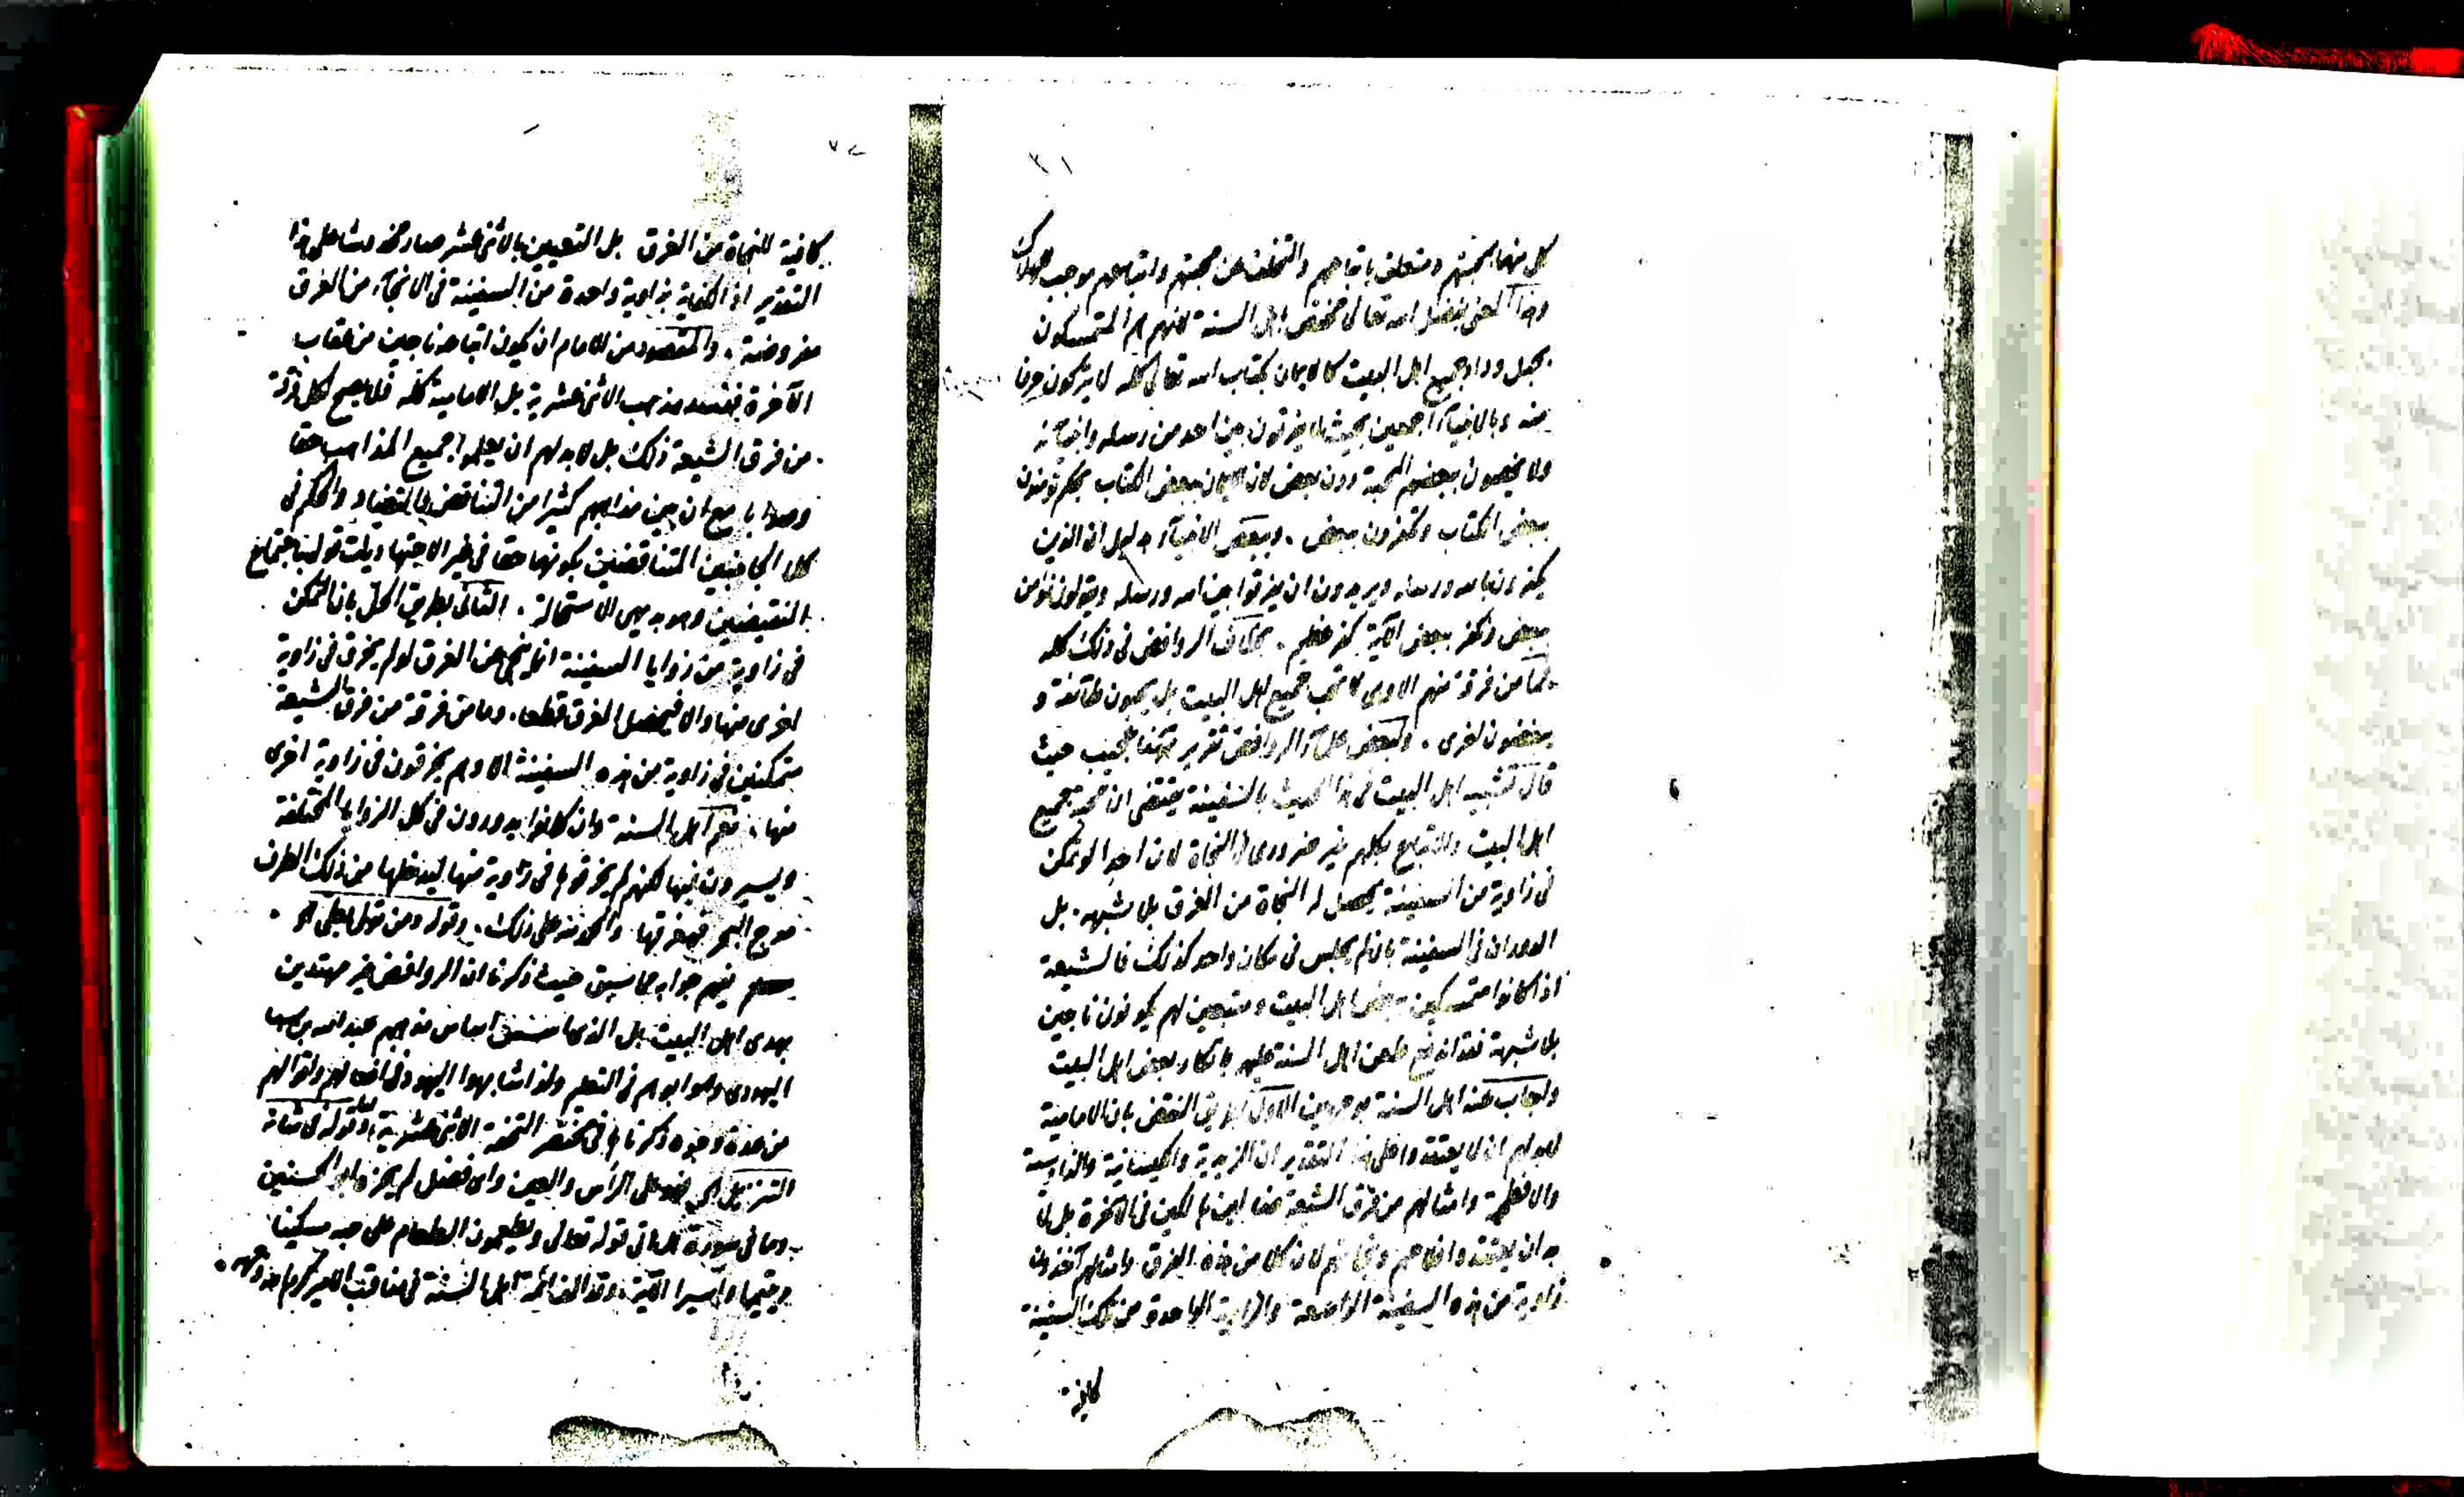 ٧١
كل منهما بمحبتهم ومتعلق باتباعهم والتخلف عن محبتهم واتباعهم موجب للهلاك
وهذا المعنى بفضل الله تعالى مختص باهل السنة لانهم هم المتمسكون
بحبل وداد جميع اهل البيت كالايمان بكتاب الله تعالى كله لا يتركون حرفا
منه وبالانبياء اجمعين بحيث لا يفرقون بين احد من رسله وانبيائه
ولا يخصون بعضهم بالمحبة دون بعض لان الايمان ببعض الكتاب بحكم تؤمنون
ببعض الكتاب وتكفرون ببعض . وببعض الانبياء بدليل ان الذين
يكفرون بالله ورسله ويريدون ان يفرقوا بين الله ورسله ويقولون نؤمن
ببعض ونكفر ببعض الآية كفر غليظ . بخلاف الروافض في ذلك كله
فما من فرقة منهم الا وهى لا تحب جميع اهل البيت بل يحبون طائفة و
يبغضون اخرى . ولبعض علماء الروافض تقرير ههنا عجيب حيث
قال تشبيه اهل البيت في هذا الحديث بالسفينة يقتضى ان محبة جميع
اهل البيت والاتباع بكلهم غير ضرورى في النجاة لان احدا لو تمكن
فى زاوية من السفينة يحصل له النجاة من الغرق بلا شبهه . بل
الدوران في السفينة بان لم يجلس فى مكان واحد كذلك فالشيعة
اذا كانوا متمسكين ببعض اهل البيت ومتبعين لهم يكونون ناجين
بلا شبهة فقد اندفع طعن اهل السنة عليهم بانكار بعض اهل البيت
واجاب عنه اهل السنة بوجهين الاول بطريق النقض بان الامامية
لابد لهم ان لا يعتقدوا على هذا التقدير ان الزيدية والكيسانية والناوسية
والافطحية وامثالهم من فرق الشيعة ضالين هالكين في الآخرة بل لا
بد ان يعتقدوا فلاحهم ونجاتهم لان كلا من هذه الفرق وامثالهم آخذون
زاوية من هذه السفينة الواسعة والزاوية الواحدة من تلك السفينة
كافية
٧٢
كافية للنجاة من الغرق بل التعيين بالاثنى عشر صار مخدوشا على هذا
التقدير اذ الكفاية بزاوية واحدة من السفينة في الانجاء من الغرق
مفروضة . والمقصود من الامام ان يكون اتباعه ناجين من عقاب
الآخرة فتفسد مذهب الاثنى عشرية بل الامامية كله فلا يصح لكل فرقة
من فرق الشيعة ذلك بل لابد لهم ان يعلموا جميع المذاهب حقا
وصوابا مع ان بين مذاهبهم كثيرا من التناقض والتضاد والحكم فى
كلا الجانبين المتناقضين بكونهما حقا في غير الاجتهاديات قول باجتماع
النقيضين وهو بديهى الاستحالة . الثانى بطريق الحل بان التمكن
فى زاوية من زوايا السفينة انما ينجى عن الغرق لو لم يخرق في زاوية
اخرى منها والا فيحصل الغرق قطعا . وما من فرقة من فرق الشيعة
متمكنين في زاوية من هذه السفينة الا وهم يخرقون في زاوية اخرى
منها . نعم اهل السنة وان كانوا يدورون في كل الزوايا المختلفة
ويسيرون فيها لكنهم لم يخرقوا في زاوية منها ليدخلها من ذلك الطرف
موج البحر فيغرقها . والحمد لله على ذلك . وقوله ومن تولى
يفهم جوابه مما سبق حيث ذكرنا ان الروافض غير مهتدين
بهدى اهل البيت بل الذى اسس اساس مذهبهم عبد الله بن سبا
اليهودى وهو ابوهم في التعليم ولذا شابهوا اليهود فى افعالهم واقوالهم
من عدة وجوه ذكرناها في مختصر التحفة الاثنى عشرية . وقوله فى شانه
التنزيل الى فعلى الرأس والعين واى فضل لم يحزه ابو الحسنين
وما فى سورة هل اتى قوله تعالى ويطعمون الطعام على حبه مسكينا
ويتيما واسيرا الآية . وقد الف ائمة اهل السنة فى مناقب الامير كرم الله وجهه .